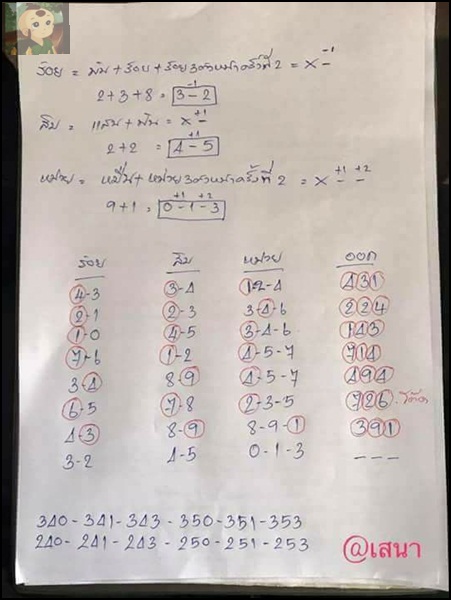 ร้อย = พัน + ร้อย + ร้อย 3ตัวหน้าครั้งที่ 2 = x -1
2+3+8 = 3-2 -1
สิบ = แสน + พัน = x +1
2+2 = 4-5 +1
หน่วย = หมื่น + หน่วย 3ตัวหน้าครั้งที่ 2 = x +1 +2
9+1 = 0-1-3 +1 +2
ร้อย สิบ หน่วย ออก
4-3 3-4 1-2-4 431
2-1 2-3 3-4-6 224
1-0 4-5 3-4-6 143
7-6 1-2 4-5-7 714
3-4 8-9 4-5-7 494
6-5 7-8 2-3-5 726
4-3 8-9 8-9-1 391
3-2 4-5 0-1-3 ---
340-341-343-350-351-353
240-241-243-250-251-253
@เสนา